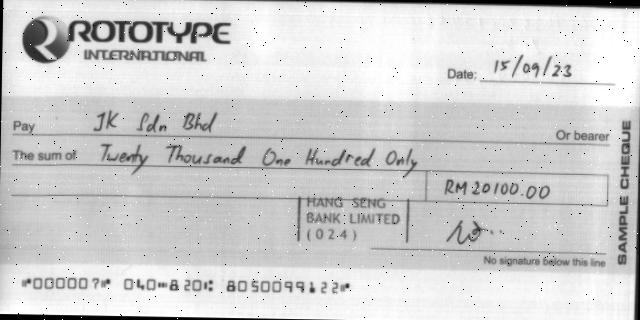 ROTOTYPE
INTERNATIONAL
Date: 15/09/23
Pay JK Sdn Bhd Or bearer
The sum of Twenty Thousand One Hundred Only
RM 20100.00
HANG SENG
BANK LIMITED
(024)
No signature below this line
SAMPLE CHEQUE
⑈000007⑈ 040⑉820⑆ 8050099122⑈